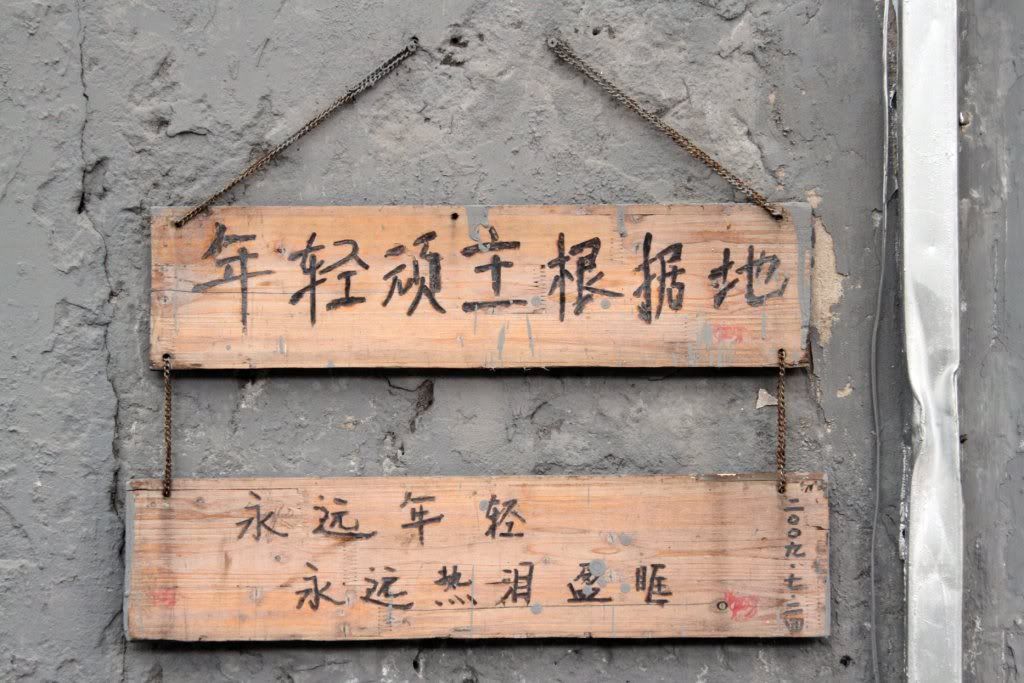 年轻顽主根据地
永远年轻
永远热泪盈眶
二〇〇九·七·二四